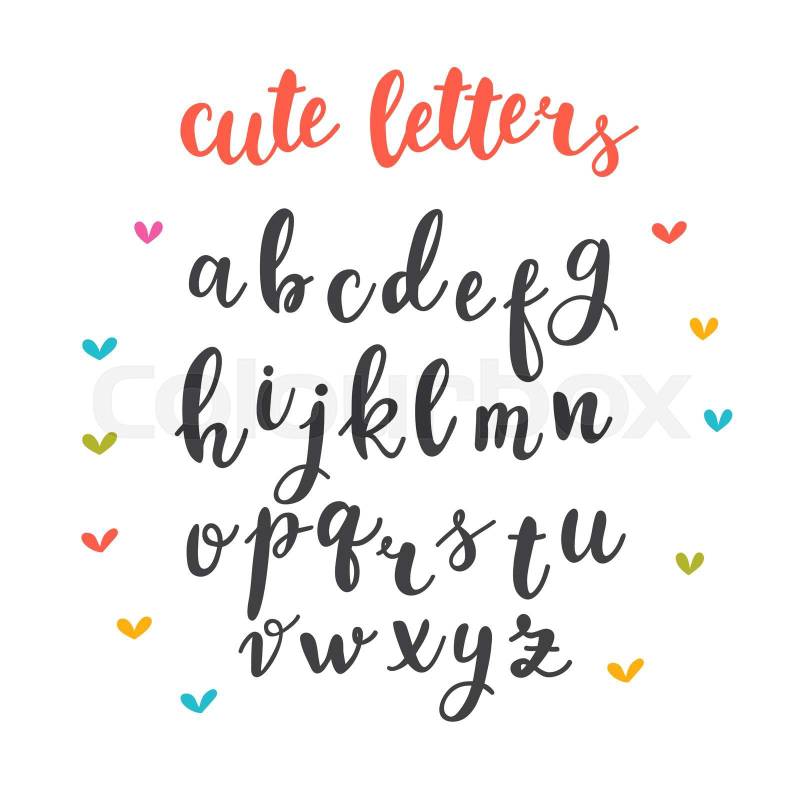 cute letters
a b c d e f g
h i j k l m n
o p q r s t u
v w x y z
Colourbox